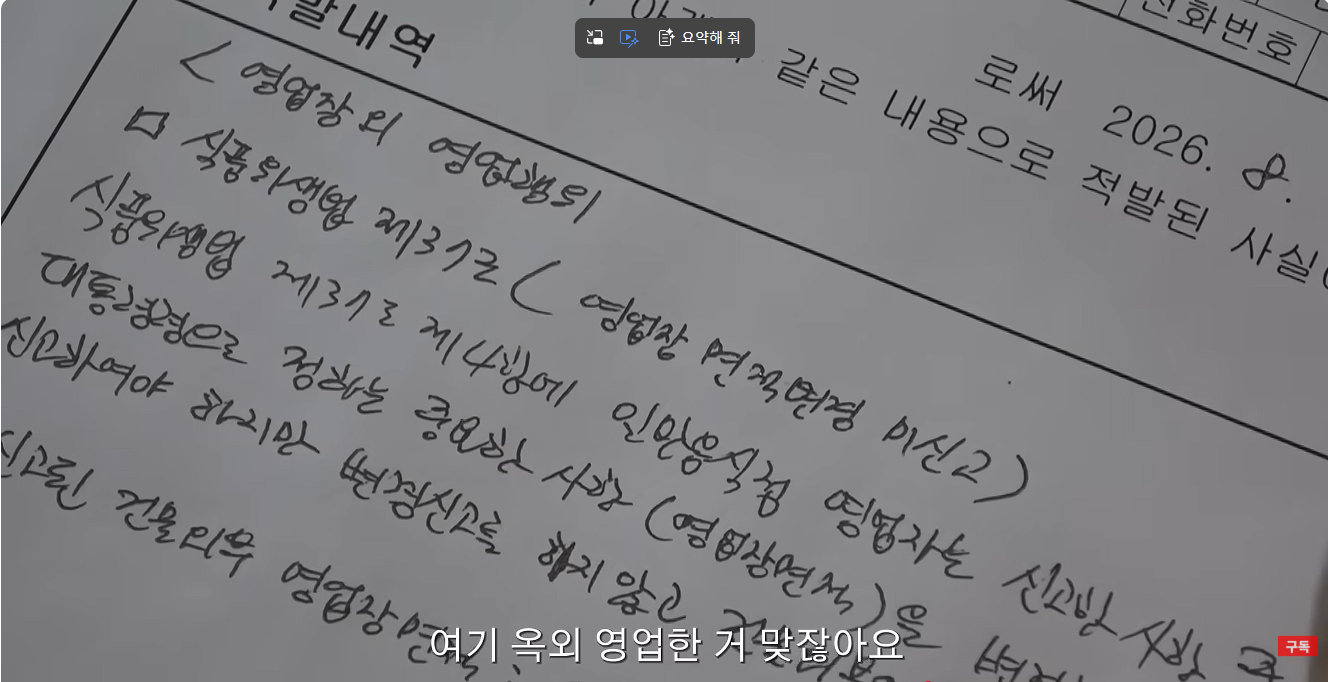 요약해 줘
전화번호
발내역
같은 내용으로 적발된 사실
로써 2026. 8.
< 영업장 외 영업행위
□ 식품위생법 제37조 ( 영업장 면적변경 미신고 )
식품위생법 제37조 제4항에 일반음식점 영업자는 신고한 사항 중
대통령령으로 정하는 중요한 사항 (영업장면적)을
신고하여야 하지만 변경신고를 하지 않고
신고된 건물외부 영업장면적
여기 옥외 영업한 거 맞잖아요
구독